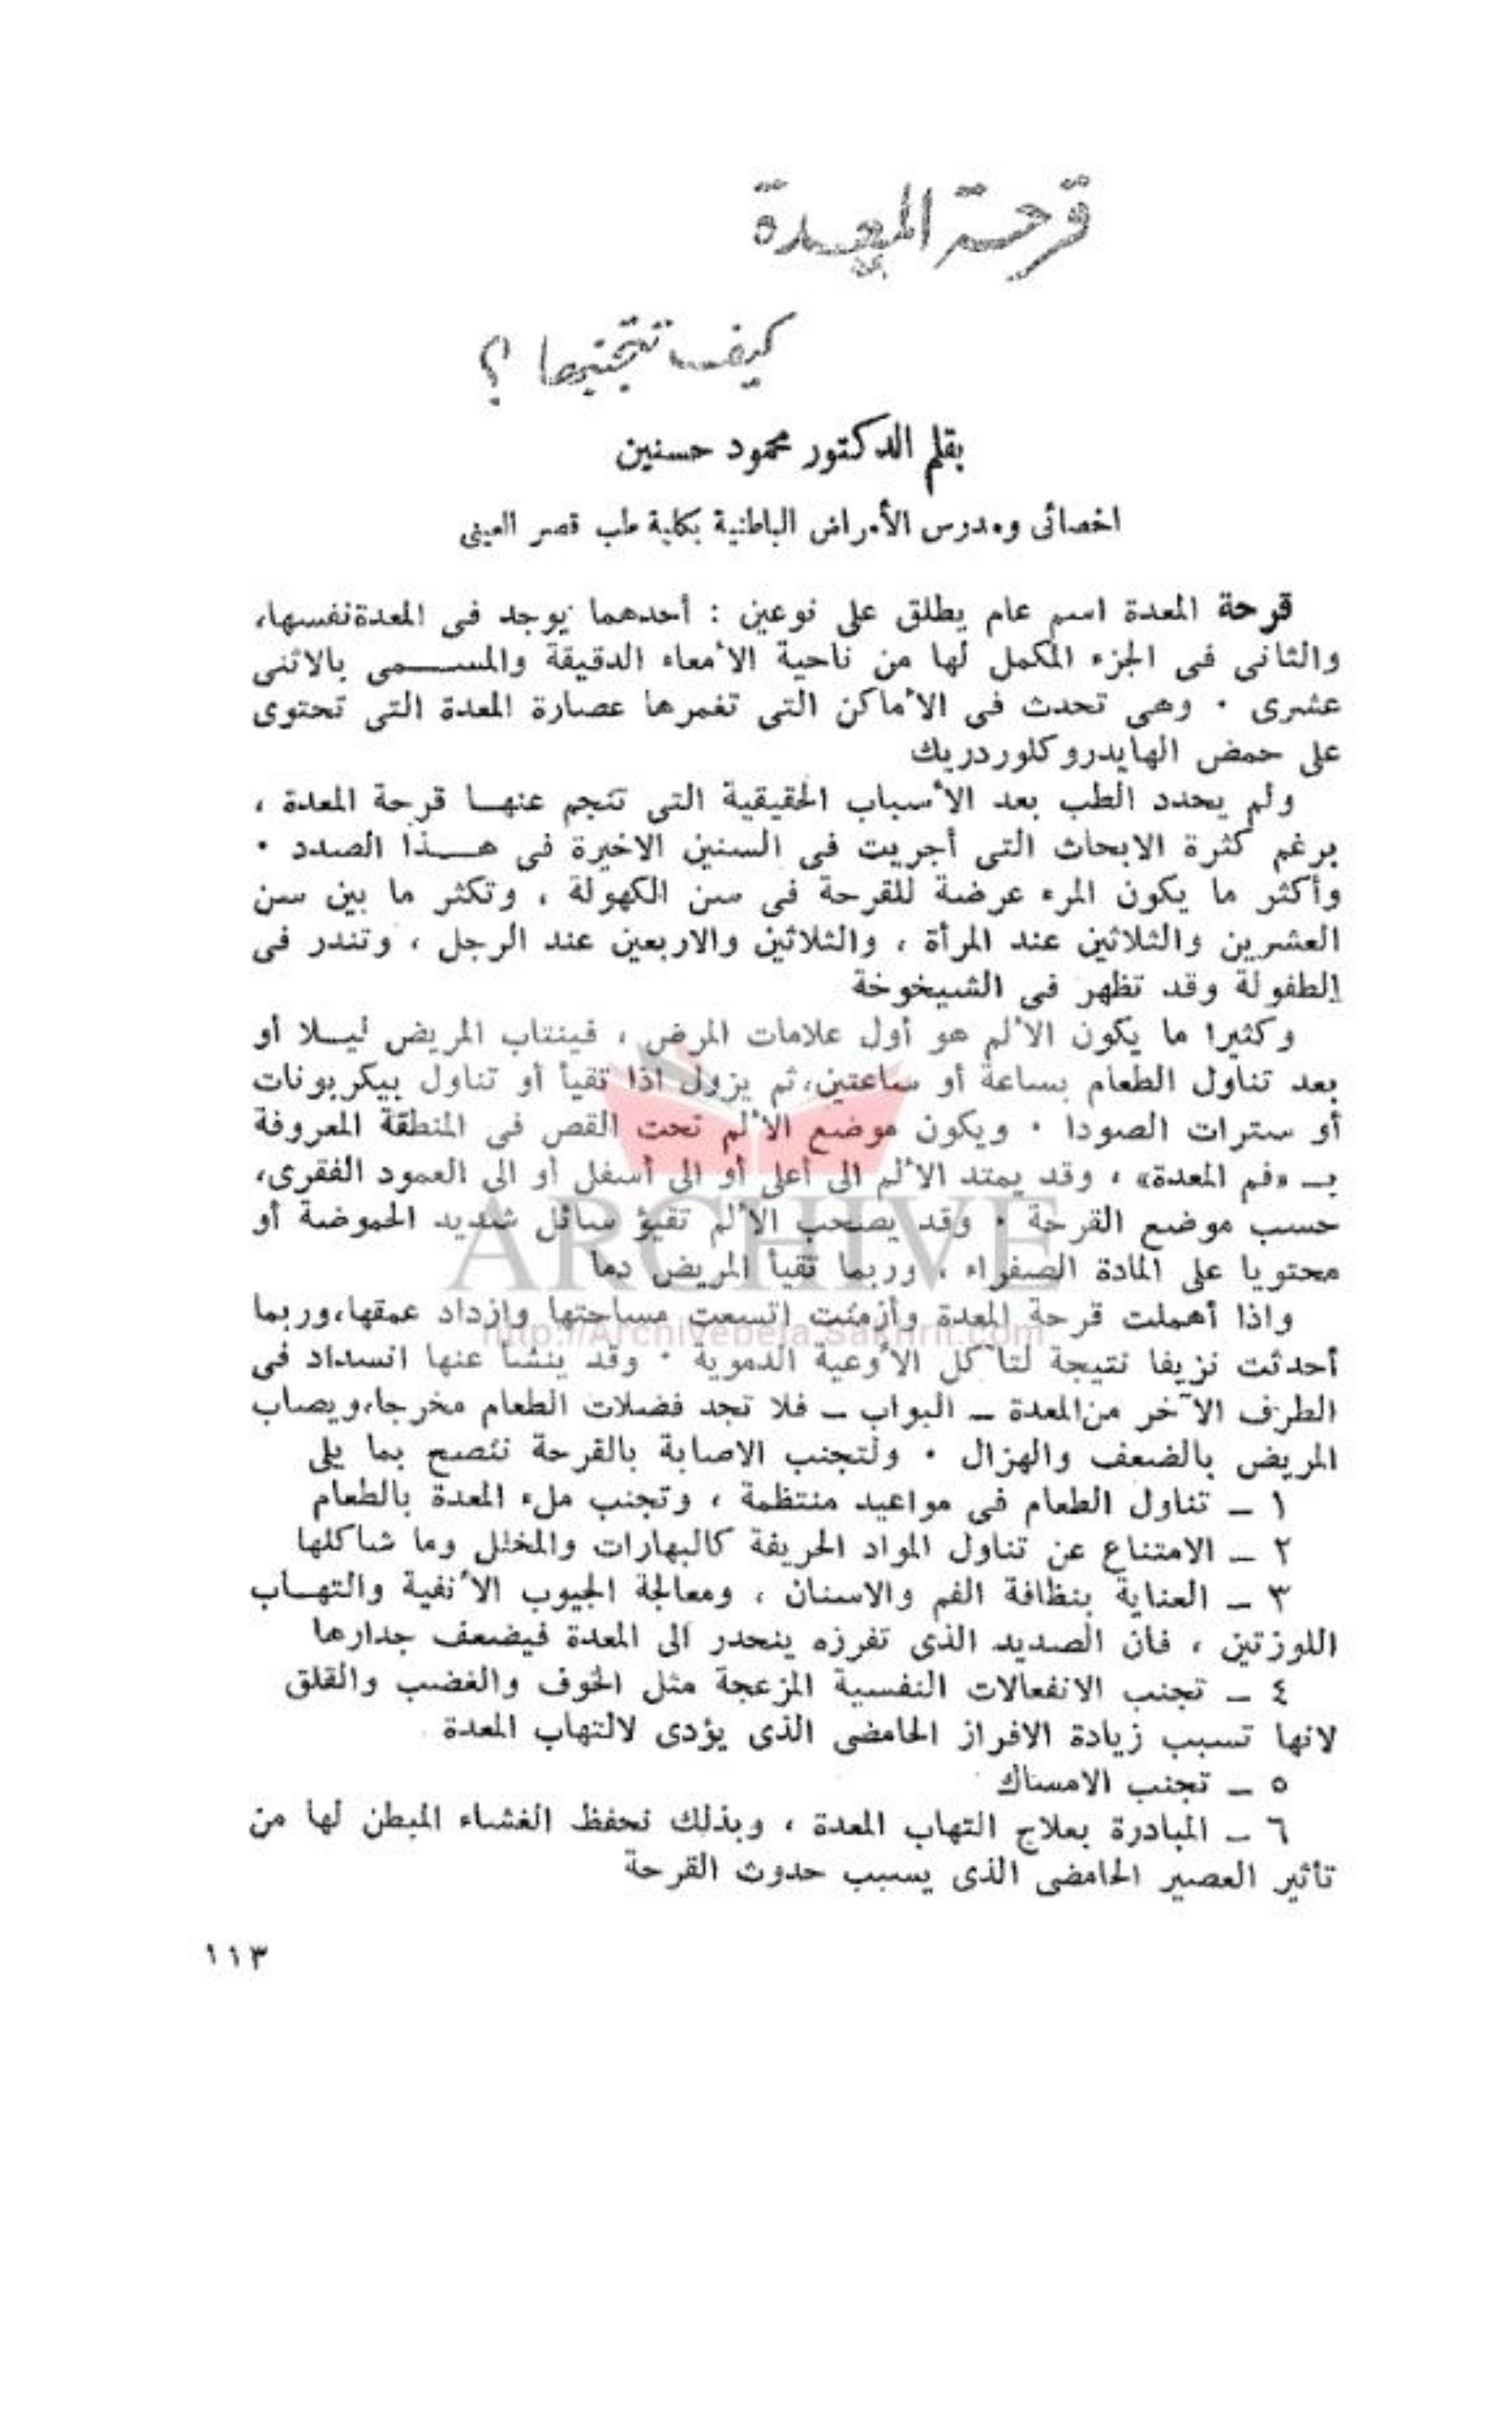 قرحة المعدة
كيف تتجنبها ؟
بقلم الدكتور محمود حسنين
اخصائى ومدرس الأمراض الباطنية بكلية طب قصر العينى
قرحة المعدة اسم عام يطلق على نوعين : أحدهما يوجد فى المعدة نفسها،
والثانى فى الجزء المكمل لها من ناحية الأمعاء الدقيقة والمســـمى بالاثنى
عشرى . وهى تحدث فى الأماكن التى تغمرها عصارة المعدة التى تحتوى
على حمض الهايدروكلوردريك
ولم يحدد الطب بعد الأسباب الحقيقية التى تنجم عنهــا قرحة المعدة ،
برغم كثرة الابحاث التى أجريت فى السنين الاخيرة فى هـــذا الصدد .
وأكثر ما يكون المرء عرضة للقرحة فى سن الكهولة ، وتكثر ما بين سن
العشرين والثلاثين عند المرأة ، والثلاثين والاربعين عند الرجل ، وتندر فى
الطفولة وقد تظهر فى الشيخوخة
وكثيرا ما يكون الألم هو أول علامات المرض ، فينتاب المريض ليــلا أو
بعد تناول الطعام بساعة أو ساعتين، ثم يزول اذا تقيأ أو تناول بيكربونات
أو سترات الصودا . ويكون موضع الألم تحت القص فى المنطقة المعروفة
بـ «فم المعدة» ، وقد يمتد الألم الى أعلى أو الى أسفل أو الى العمود الفقرى،
حسب موضع القرحة . وقد يصحب الألم تقيؤ سائل شديد الحموضة أو
محتويا على المادة الصفراء ، وربما تقيأ المريض دما
ARCHIVE
واذا أهملت قرحة المعدة وأزمنت اتسعت مساحتها وازداد عمقها، وربما
http://Archivebeta.Sakhrit.com
أحدثت نزيفا نتيجة لتآكل الأوعية الدموية . وقد ينشأ عنها انسداد فى
الطرف الآخر من المعدة ـ البواب ـ فلا تجد فضلات الطعام مخرجا، ويصاب
المريض بالضعف والهزال . ولتجنب الاصابة بالقرحة ننصح بما يلى
١ ـ تناول الطعام فى مواعيد منتظمة ، وتجنب ملء المعدة بالطعام
٢ ـ الامتناع عن تناول المواد الحريفة كالبهارات والمخلل وما شاكلها
٣ ـ العناية بنظافة الفم والاسنان ، ومعالجة الجيوب الأنفية والتهــاب
اللوزتين ، فان الصديد الذى تفرزه ينحدر الى المعدة فيضعف جدارها
٤ ـ تجنب الانفعالات النفسية المزعجة مثل الخوف والغضب والقلق
لانها تسبب زيادة الافراز الحامضى الذى يؤدى لالتهاب المعدة
٥ ـ تجنب الامساك
٦ ـ المبادرة بعلاج التهاب المعدة ، وبذلك نحفظ الغشاء المبطن لها من
تأثير العصير الحامضى الذى يسبب حدوث القرحة
١١٣